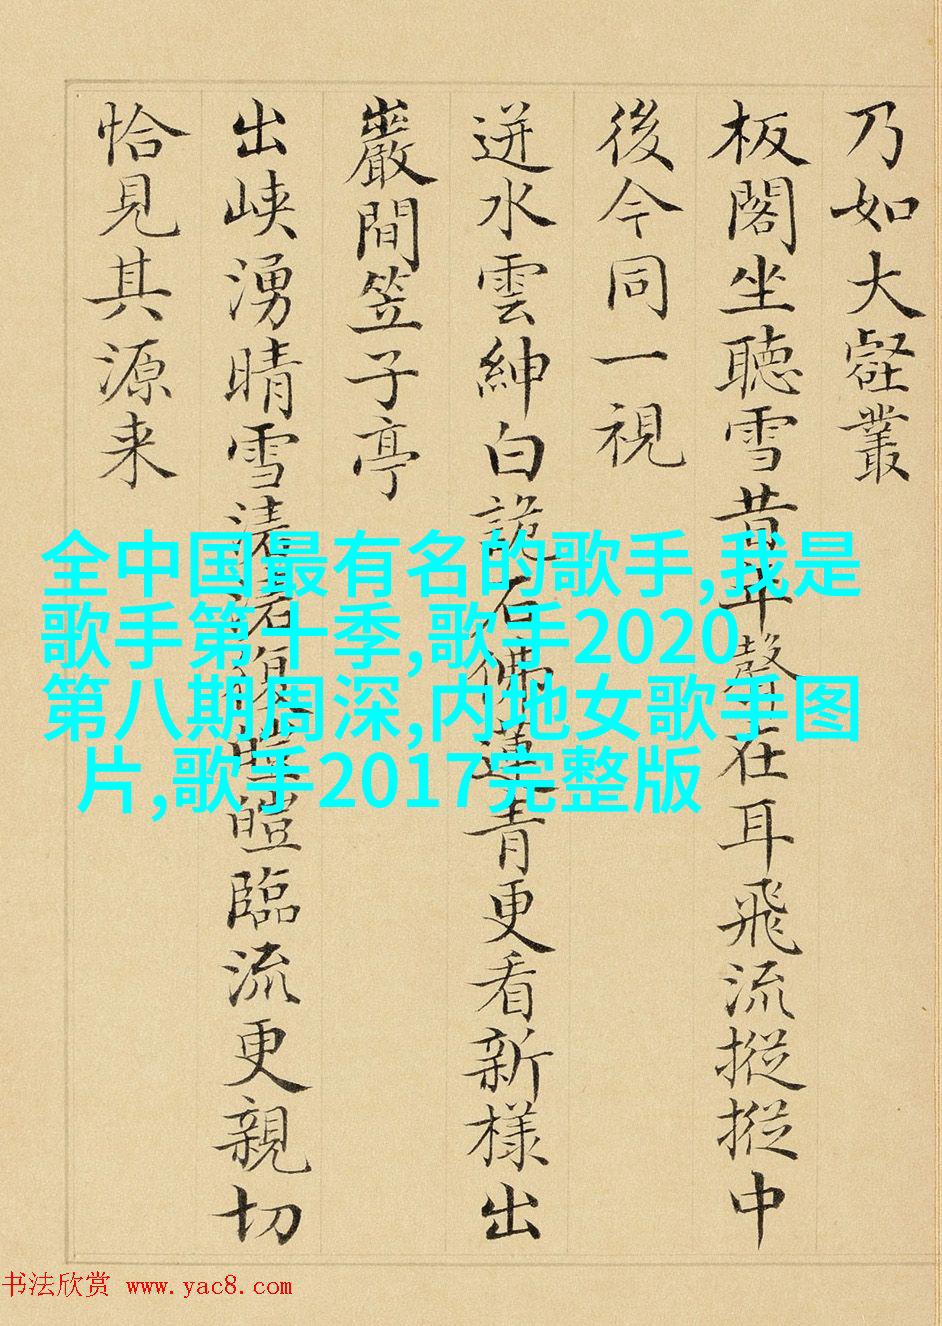 乃如大壑叢
板閣坐聽雪昔年聲在耳飛流摐摐中
後今同一視
迸水雲紳白詭石佛蓮青更看新樣出
巖間笠子亭
出峽湧晴雪復皚皚臨流更親切
恰見其源来
全中国最有名的歌手,我是
歌手第十季,歌手2020
第八期周深,内地女歌手图
片,歌手2017完整版
书法欣赏 www.yac8.com